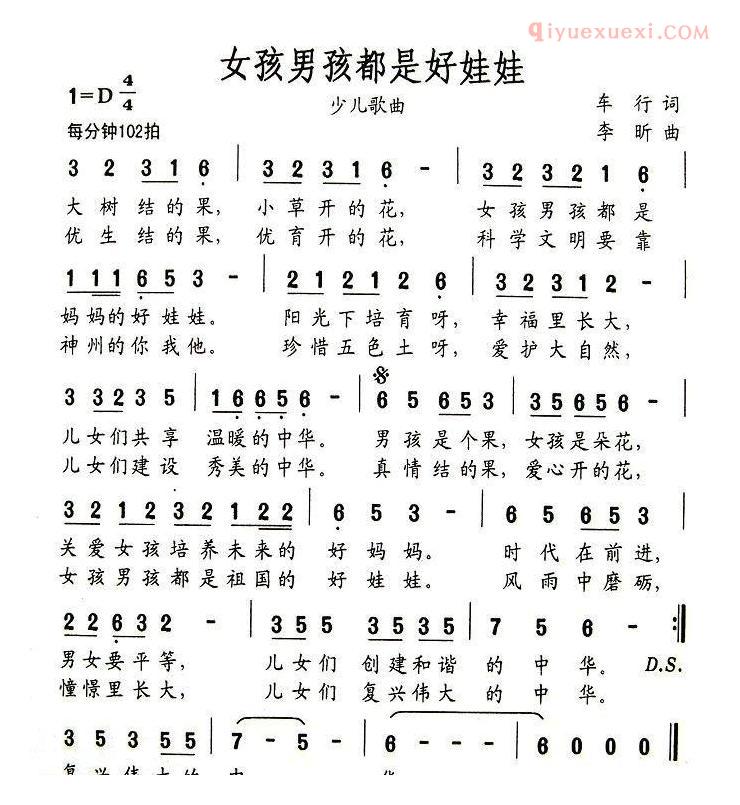 qiyuexuexi.com
女孩男孩都是好娃娃
1=D 4/4
少儿歌曲
车 行 词
每分钟102拍
李 昕 曲
3 2 3 1 6 | 3 2 3 1 6 - | 3 2 3 2 1 6
大树结的果, 小草开的花, 女孩男孩都是
优生结的果, 优育开的花, 科学文明要靠
1 1 1 6 5 3 - | 2 1 2 1 2 6 | 3 2 3 1 2 -
妈妈的好娃娃。 阳光下培育呀, 幸福里长大,
神州的你我他。 珍惜五色土呀, 爱护大自然,
3 3 2 3 5 | 1 6 6 5 6 - | 6 5 6 5 3 | 3 5 6 5 6 -
儿女们共享 温暖的中华。 男孩是个果, 女孩是朵花,
儿女们建设 秀美的中华。 真情结的果, 爱心开的花,
3 2 1 2 3 2 1 2 2 | 6 5 3 - | 6 5 6 5 3
关爱女孩培养未来的 好妈妈。 时代在前进,
女孩男孩都是祖国的 好娃娃。 风雨中磨砺,
2 2 6 3 2 - | 3 5 5 3 5 3 5 | 7 5 6 - :|
男女要平等, 儿女们 创建和谐 的中华。 D.S.
憧憬里长大, 儿女们 复兴伟大 的中华。
3 5 3 5 5 | 7 - 5 - | 6 - - - | 6 0 0 0 ||